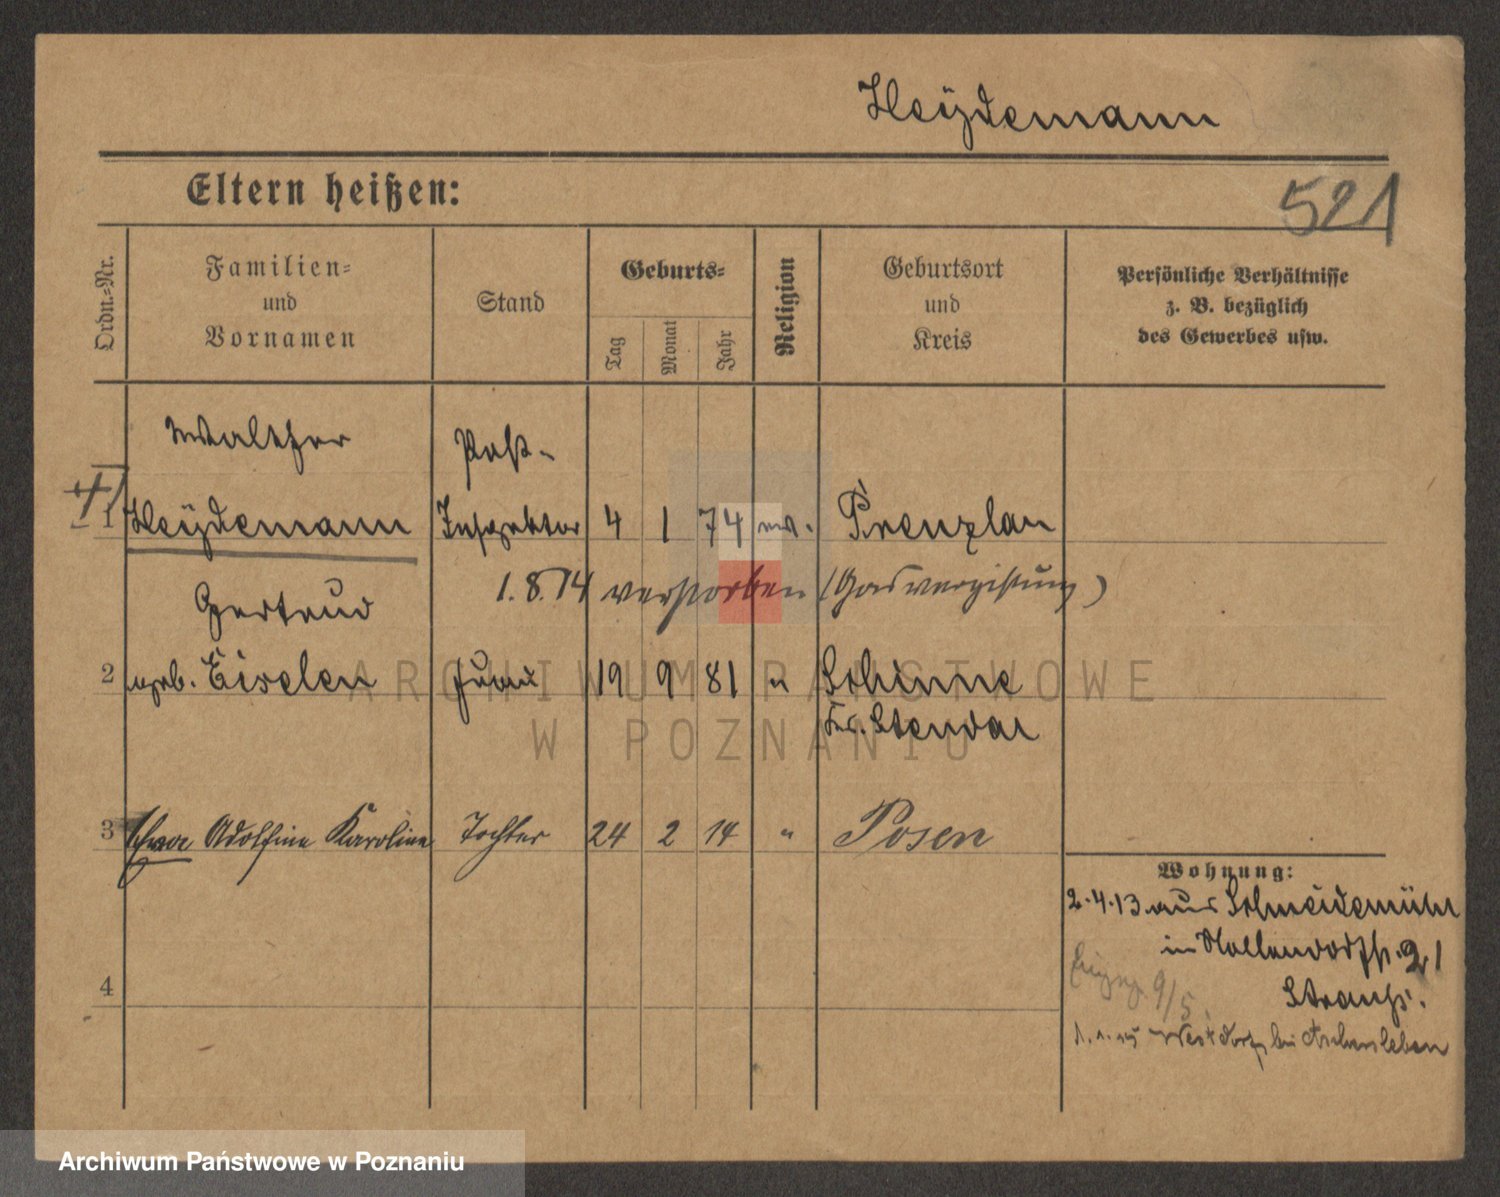 Heÿdemann
Eltern heißen:
521
Ordn.-Nr.
Familien-
und
Vornamen
Stand
Geburts-
Tag
Monat
Jahr
Religion
Geburtsort
und
Kreis
Persönliche Verhältnisse
z. B. bezüglich
des Gewerbes usw.
Walther
Post-
1 Heÿdemann Inspektor 4 1 74 ev. Prenzlau
1.8.14 verstorben (Gasvergiftung)
Gertrud
2 geb. Eiselen Frau 19 9 81 " Schinne
Kr. Stendal
3 Adolfine Karoline Tochter 24 2 14 " Posen
4
Wohnung:
2.4.13 aus Schneidemühl
in Nollendorfstr. 21
9/5.
Westdorf bei Aschersleben
ARCHIWUM PAŃSTWOWE
W POZNANIU
Archiwum Państwowe w Poznaniu